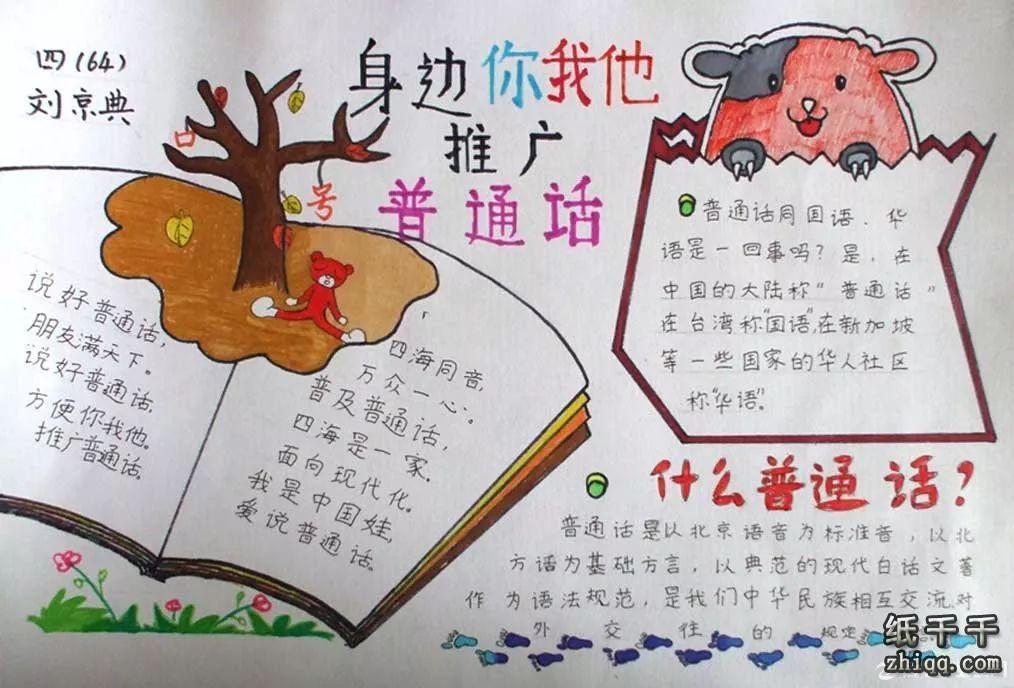 四(64)
刘京典
身边你我他
推广
普通话
口
号
说好普通话,
朋友满天下。
说好普通话,
方便你我他。
推广普通话。
四海同音,
万众一心、。
普及普通话,
四海是一家.
面向现代化。
我是中国娃,
爱说普通话。
普通话同国语、华
语是一回事吗?是,在
中国的大陆称"普通话"
在台湾称"国语",在新加坡
等一些国家的华人社区
称"华语"。
什么普通话?
普通话是以北京语音为标准音,以北
方话为基础方言,以典范的现代白话文著
作为语法规范,是我们中华民族相互交流,对
外交往的规定
纸千千
zhiqq.com